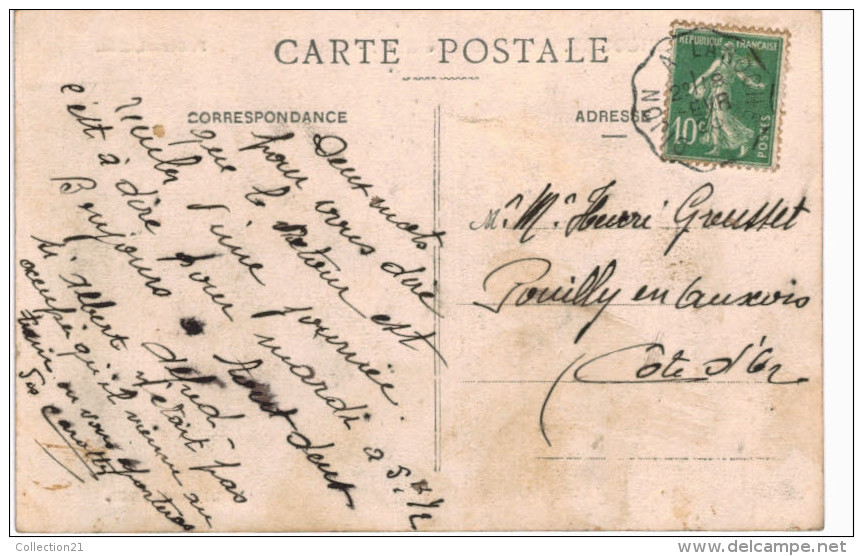 CARTE POSTALE
CORRESPONDANCE
ADRESSE
REPUBLIQUE FRANÇAISE
10
POSTES
Deux mots
pour vous dire
que le retour est
d'une journée
mardi a 5 h 1/2
c'est à dire pour
Boujours a tout deux
si Albert n'était pas
occupé qu'il vienne au
train
Mr Me Henri Grousset
Pouilly en Auxois
Côte d'Or
Collection21
delcampe.net